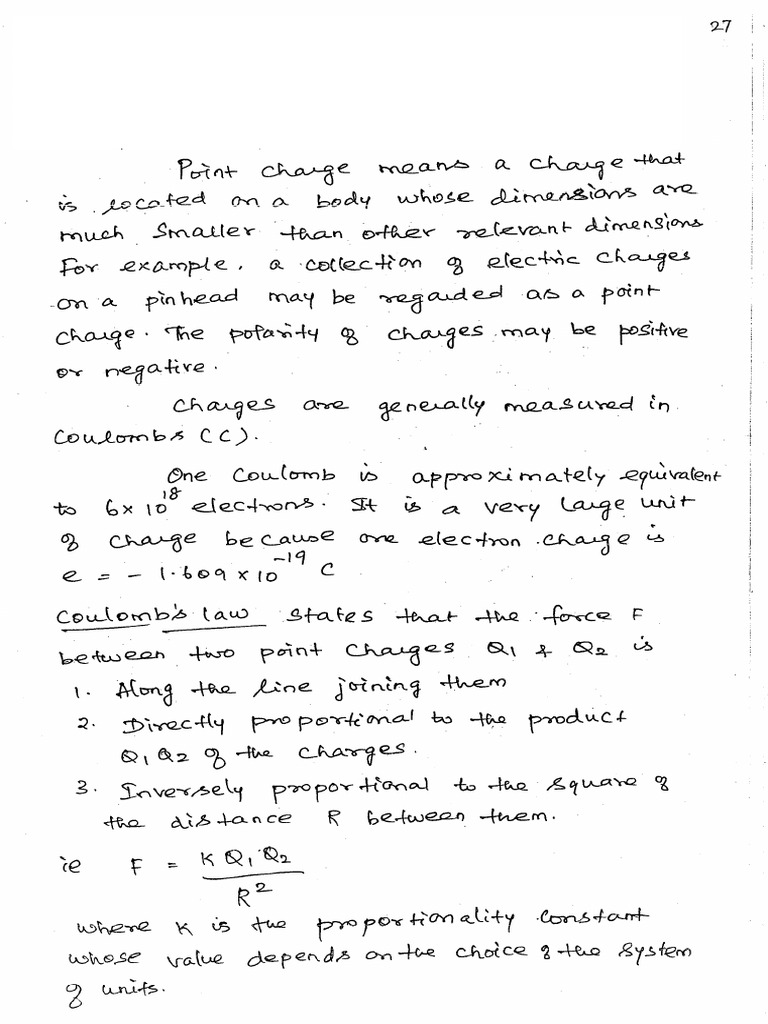 27
Point charge means a charge that
is located on a body whose dimensions are
much smaller than other relevant dimensions
For example, a collection of electric charges
on a pinhead may be regarded as a point
charge. The polarity of charges may be positive
or negative.
Charges are generally measured in
Coulombs (C).
One Coulomb is approximately equivalent
to 6×10¹⁸ electrons. It is a very large unit
of charge because one electron charge is
e = - 1.609 × 10⁻¹⁹ C
Coulomb's law states that the force F
between two point charges Q1 & Q2 is
1. Along the line joining them
2. Directly proportional to the product
Q1 Q2 of the charges.
3. Inversely proportional to the square of
the distance R between them.
ie F = K Q1 Q2 / R²
where K is the proportionality constant
whose value depends on the choice of the system
of units.